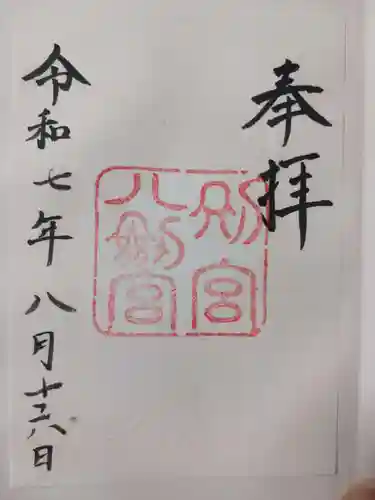 奉拝
別宮
八剣宮
令和七年八月十六日